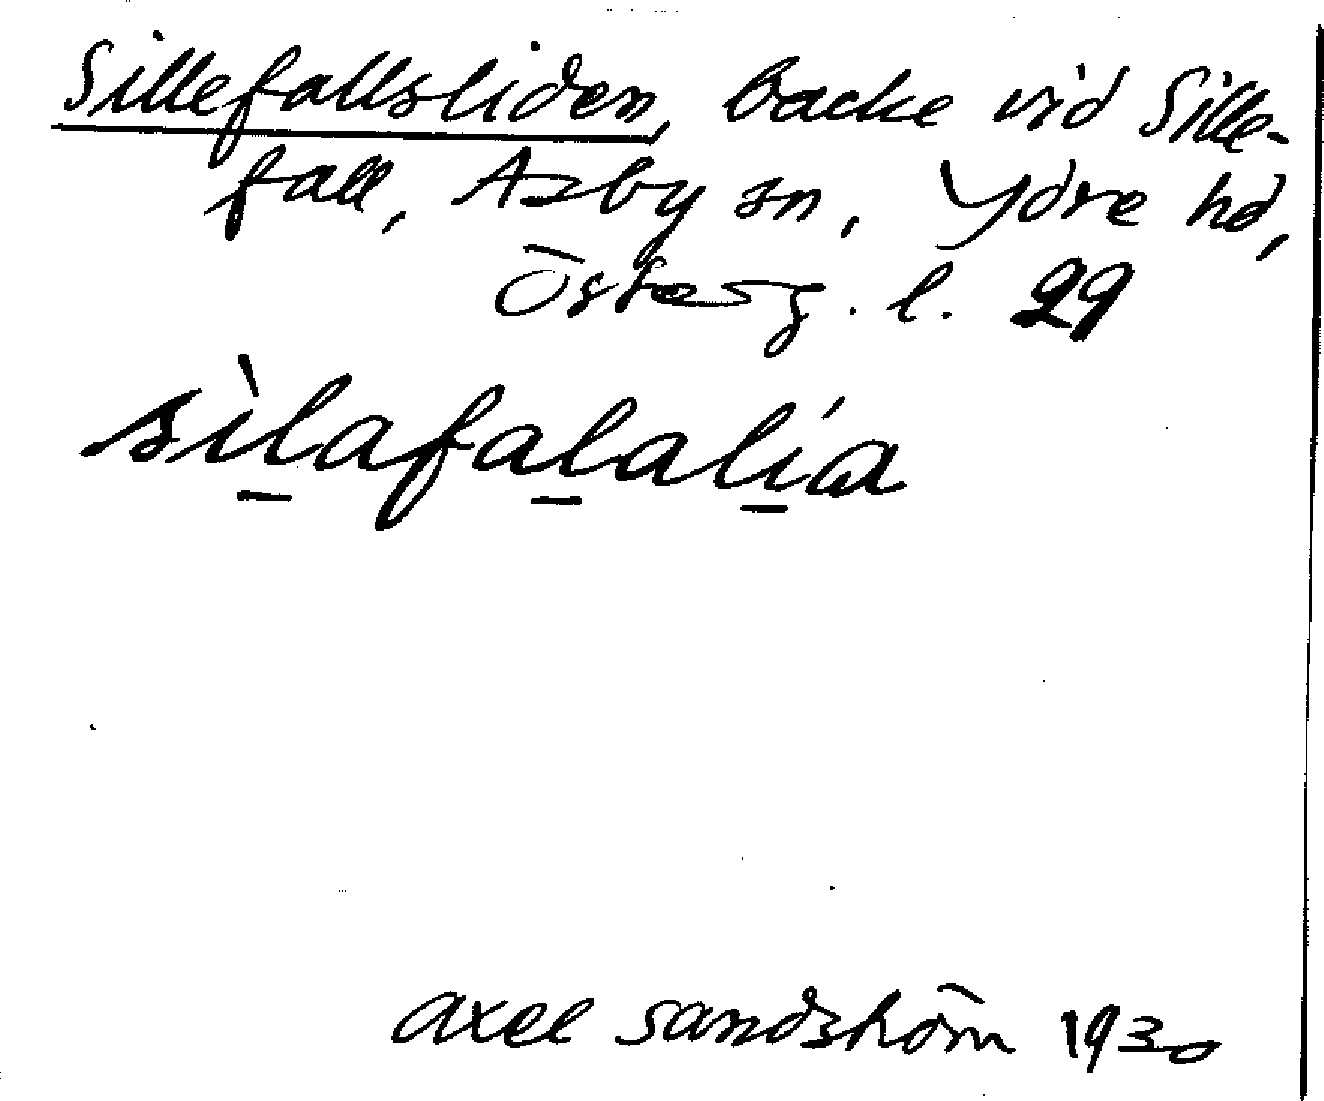 Sillefallsliden, backe vid Sille-
fall, Asby sn, Ydre hd,
Österg. l. 29
sìlafalalía
Axel Sandström 1930